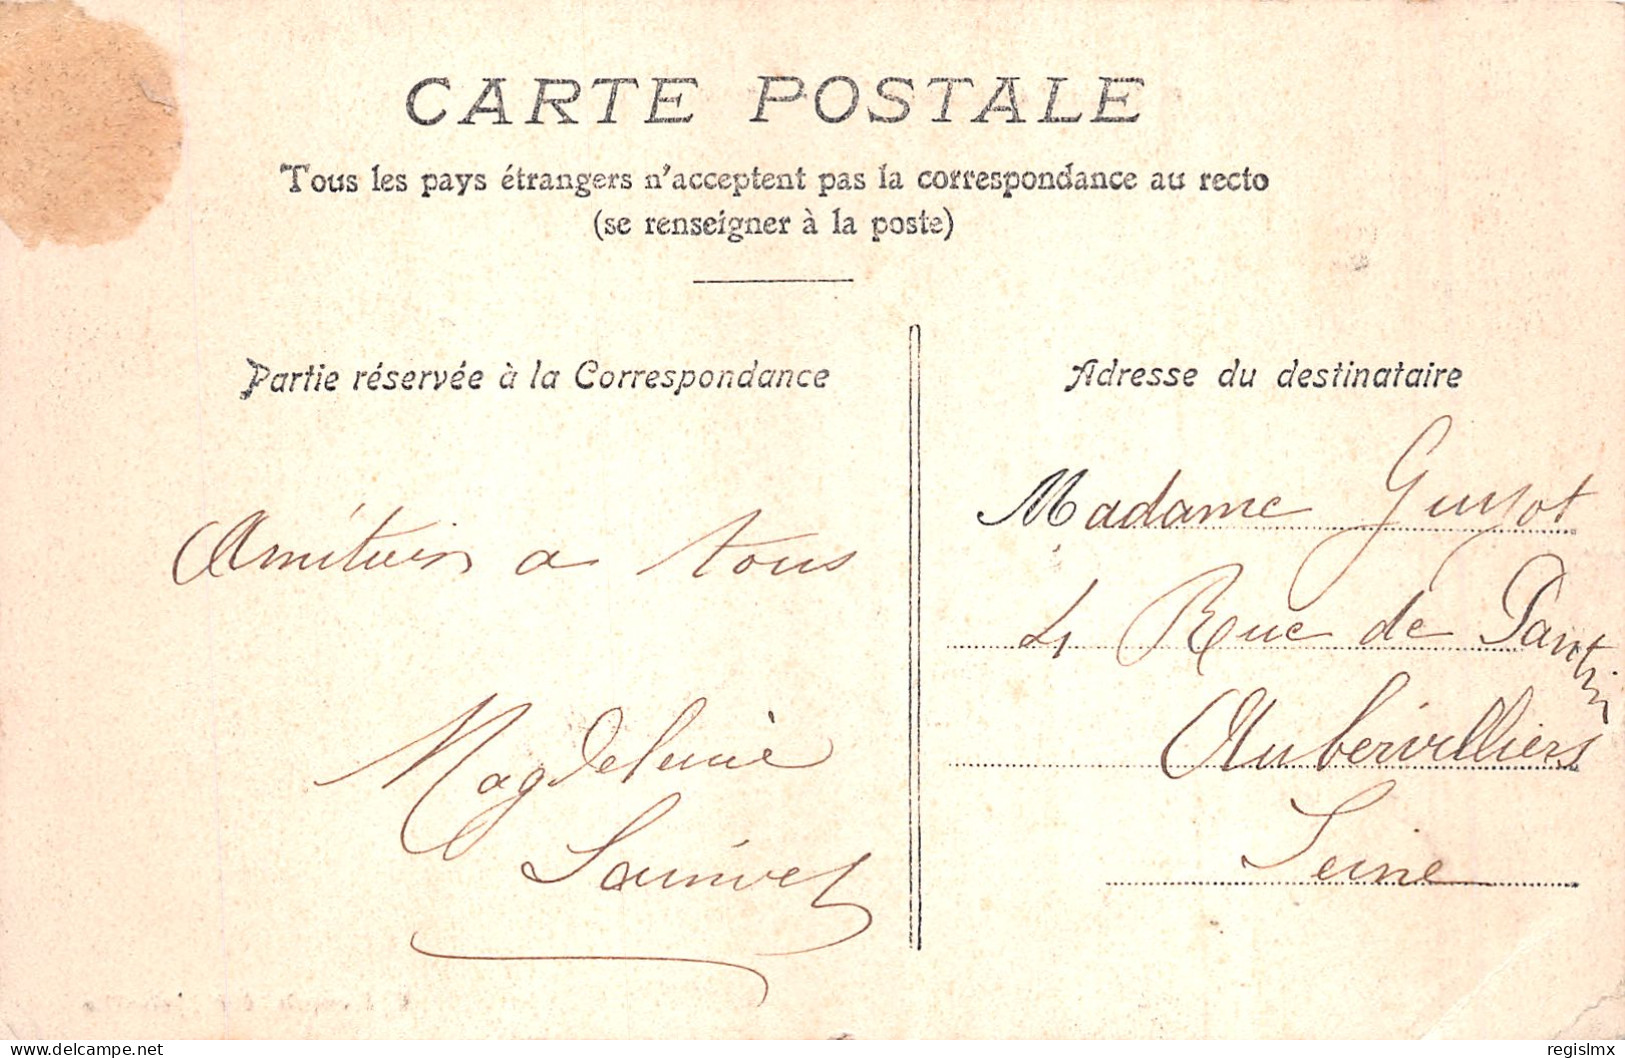 CARTE POSTALE
Tous les pays étrangers n'acceptent pas la correspondance au recto
(se renseigner à la poste)
Partie réservée à la Correspondance
Adresse du destinataire
a tous
Magdeleine
Madame Guyot
4 Rue de Pantin
Aubervilliers
Seine
delcampe.net
regislmx